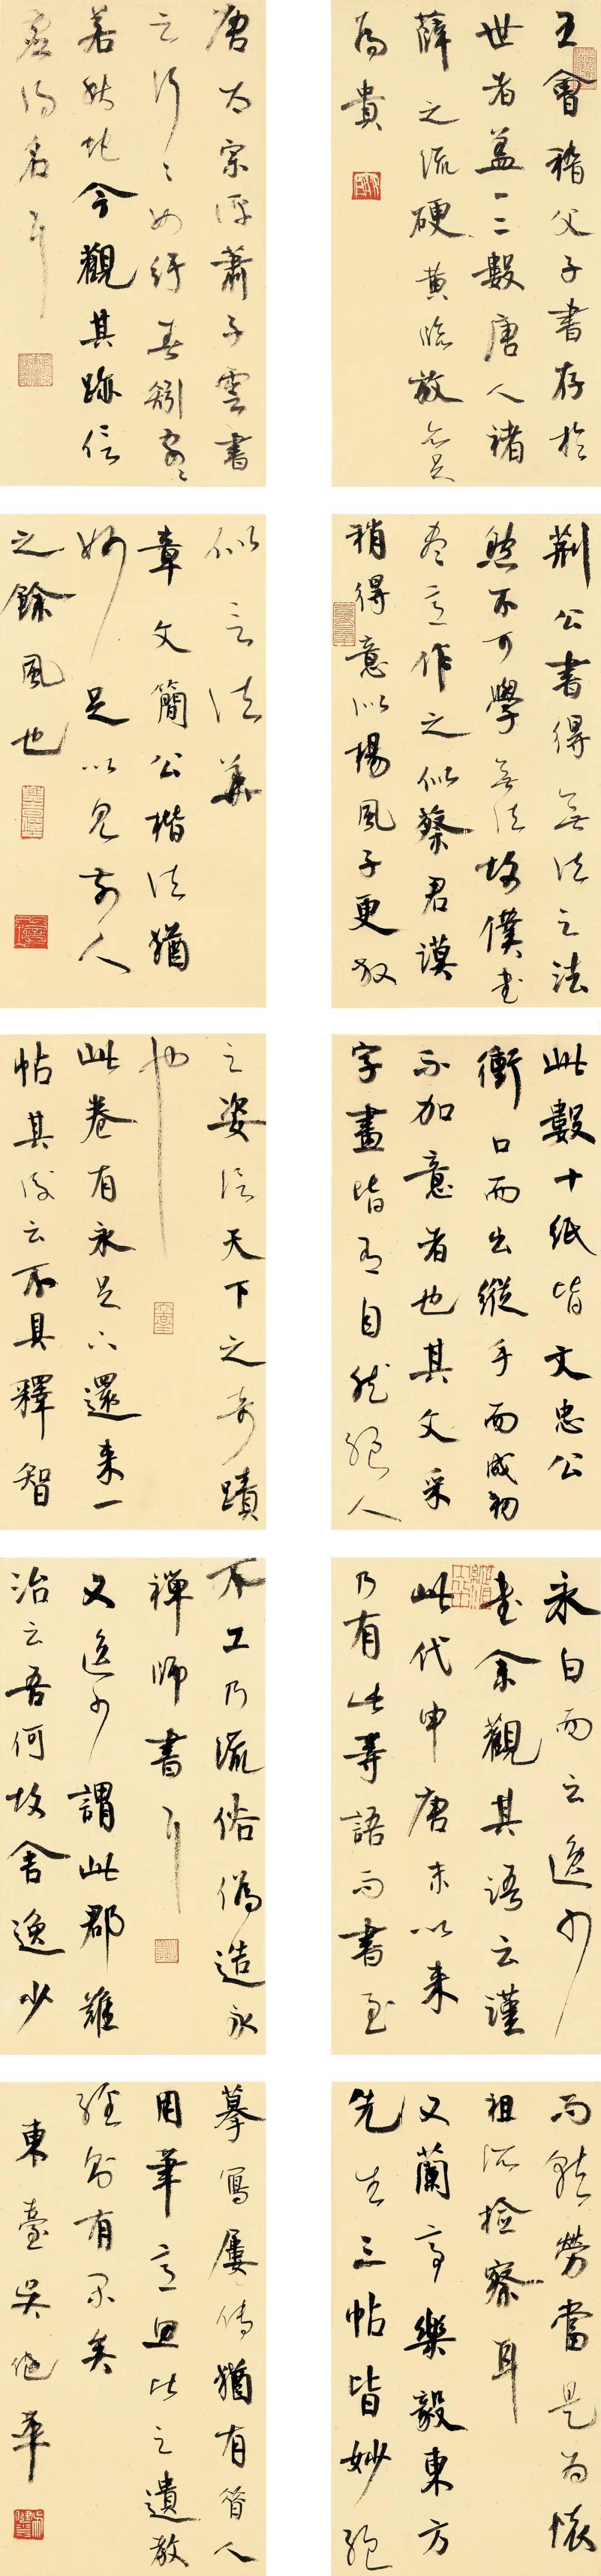 王會稽父子書存於
世者蓋一二數唐人褚
薛之流硬黄臨放亦足
為貴
唐太宗評蕭子雲書
云行行如紆春蚓字字
若秋蛇今觀其跡信
虛得名耳
荆公書得無法之法
然不可學無法故僕書
盡意作之似蔡君謨
稍得意似楊風子更放
似言法華
章文簡公楷法猶
妙足以見前人
之餘風也
此數十紙皆文忠公
衝口而出縱手而成初
不加意者也其文采
字畫皆有自然絶人
之姿信天下之奇蹟
也
此卷有永足下還来一
帖其後云不具釋智
永白而云逸少
書余觀其語云謹
此代申唐末以来
乃有此等語而書至
不工乃流俗偽造永
禪師書耳
又逸少謂此郡難
治云吾何故舍逸少
而就勞當是為懷
祖所檢察耳
又蘭亭樂毅東方
先生三帖皆妙絶
摹寫屢傳猶有昔人
用筆意思比之遺教
經則有間矣
東臺吴健華